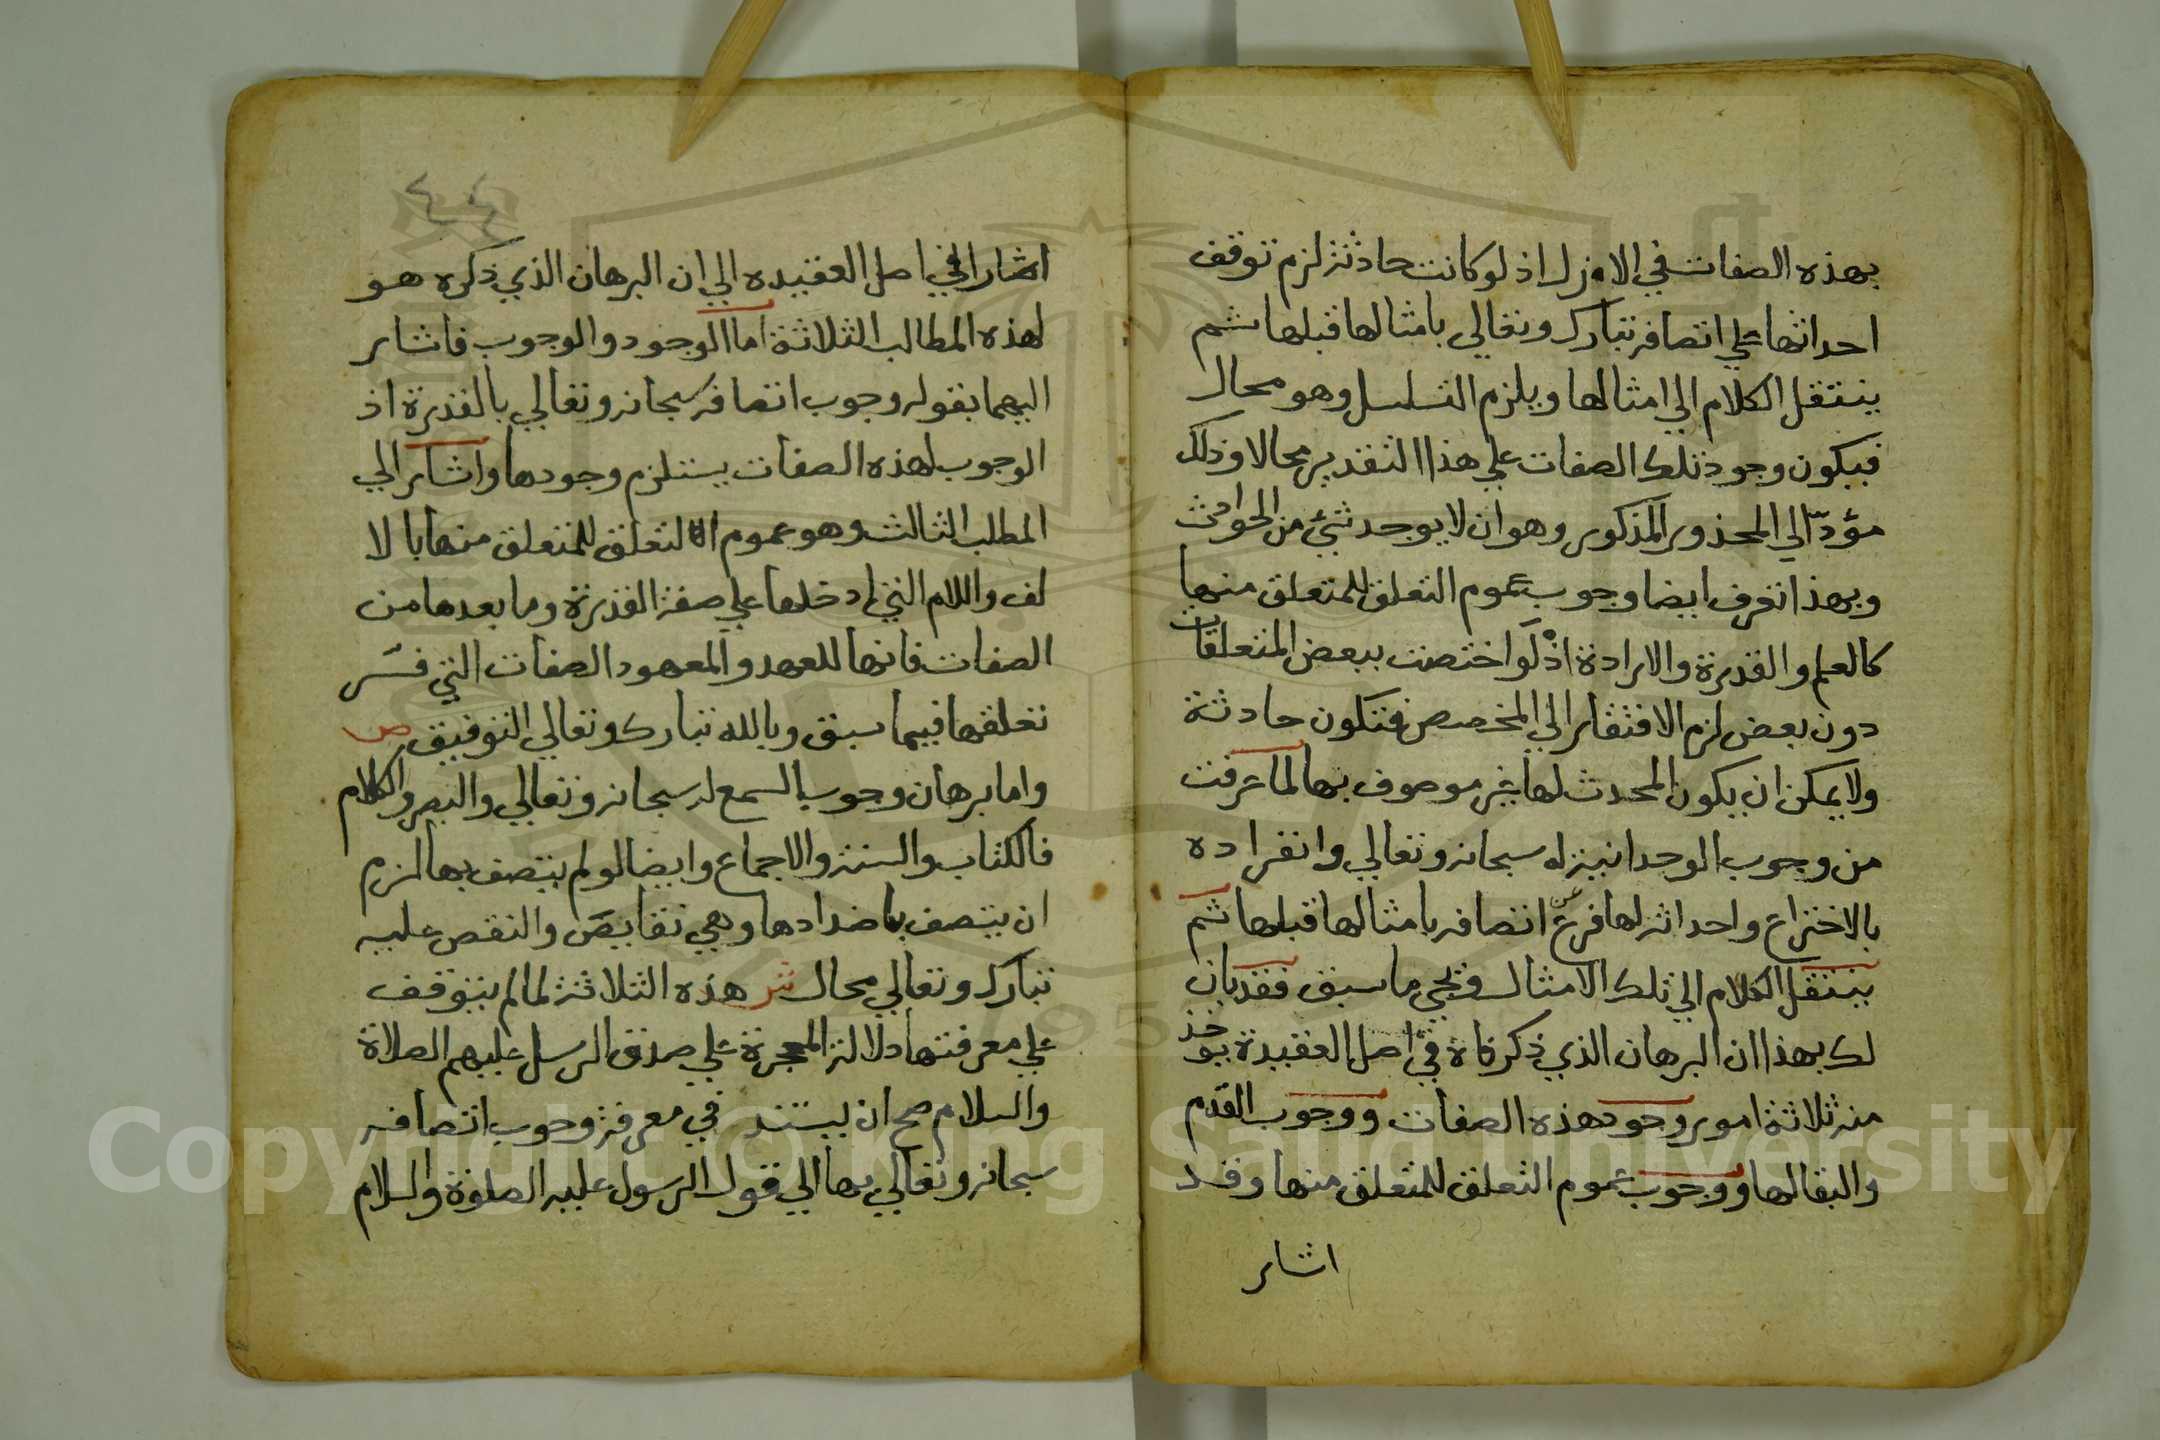 بهذه الصفات في الازل اذ لو كانت حادثة لزم توقف
احداثها علي اتصافه تبارك وتعالي بامثالها قبلها ثم
ينتقل الكلام الي امثالها ويلزم التسلسل وهو محال
فيكون وجود تلك الصفات علي هذا التقدير محالا وذلك
مؤدّ الي المحذور المذكور وهو ان لا يوجد شئ من الحوادث
وبهذا تعرف ايضا وجوب عموم التعلق للمتعلق منها
كالعلم والقدرة والارادة اذ لو اختصت ببعض المتعلقات
دون بعض لزم الافتقار الي المخصص فتكون حادثة
ولا يمكن ان يكون المحدث لها غير موصوف بها لما عرفت
من وجوب الوحدانية له سبحانه وتعالي وانفراده
بالاختراع واحداثه لها فرع عن اتصافه بامثالها قبلها ثم
ينتقل الكلام الي تلك الامثال وتجي ما سبق فقد بان
لك بهذا ان البرهان الذي ذكرناه في اصل العقيدة يوخذ
منه ثلاثة امور وجود هذه الصفات ووجوب القدم
والبقا لها ووجوب عموم التعلق للمتعلق منها وقد
اشار
٤٤
اشار في اصل العقيده الي ان البرهان الذي ذكره هو
لهذه المطالب الثلاثة اما الوجود والوجوب فاشار
اليهما بقوله وجوب اتصافه سبحانه وتعالي بالقدرة اذ
الوجوب لهذه الصفات يستلزم وجودها واشار الي
المطلب الثالث وهو عموم التعلق للمتعلق منها بالا
لف واللام التي ادخلها علي صفة القدرة وما بعدها من
الصفات فانها للعهد والمعهود الصفات التي فسّر
تعلقها فيما سبق وبالله تبارك وتعالي التوفيق ص
واما برهان وجوب السمع له سبحانه وتعالي والبصر والكلام
فالكتاب والسنة والاجماع وايضا لو لم يتصف بها لزم
ان يتصف باضدادها وهي نقايص والنقص عليه
تبارك وتعالي محال ش هذه الثلاثة لما لم يتوقف
علي معرفتها دلالة المعجزة علي صدق الرسل عليهم الصلاة
والسلام صح ان يستند في معرفة وجوب اتصافه
سبحانه وتعالي بها الي قول الرسول عليه الصلوة والسلام
Copyright © King Saud University